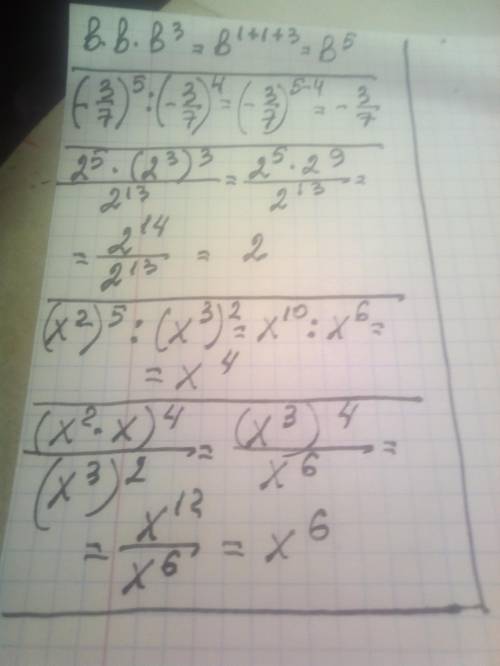 b·b·b³ = b¹⁺¹⁺³ = b⁵
(-3/7)⁵ : (-3/7)⁴ = (-3/7)⁵⁻⁴ = -3/7
2⁵·(2³)³/2¹³ = 2⁵·2⁹/2¹³ =
= 2¹⁴/2¹³ = 2
(x²)⁵ : (x³)² = x¹⁰ : x⁶ =
= x⁴
(x²·x)⁴/(x³)² = (x³)⁴/x⁶ =
= x¹²/x⁶ = x⁶